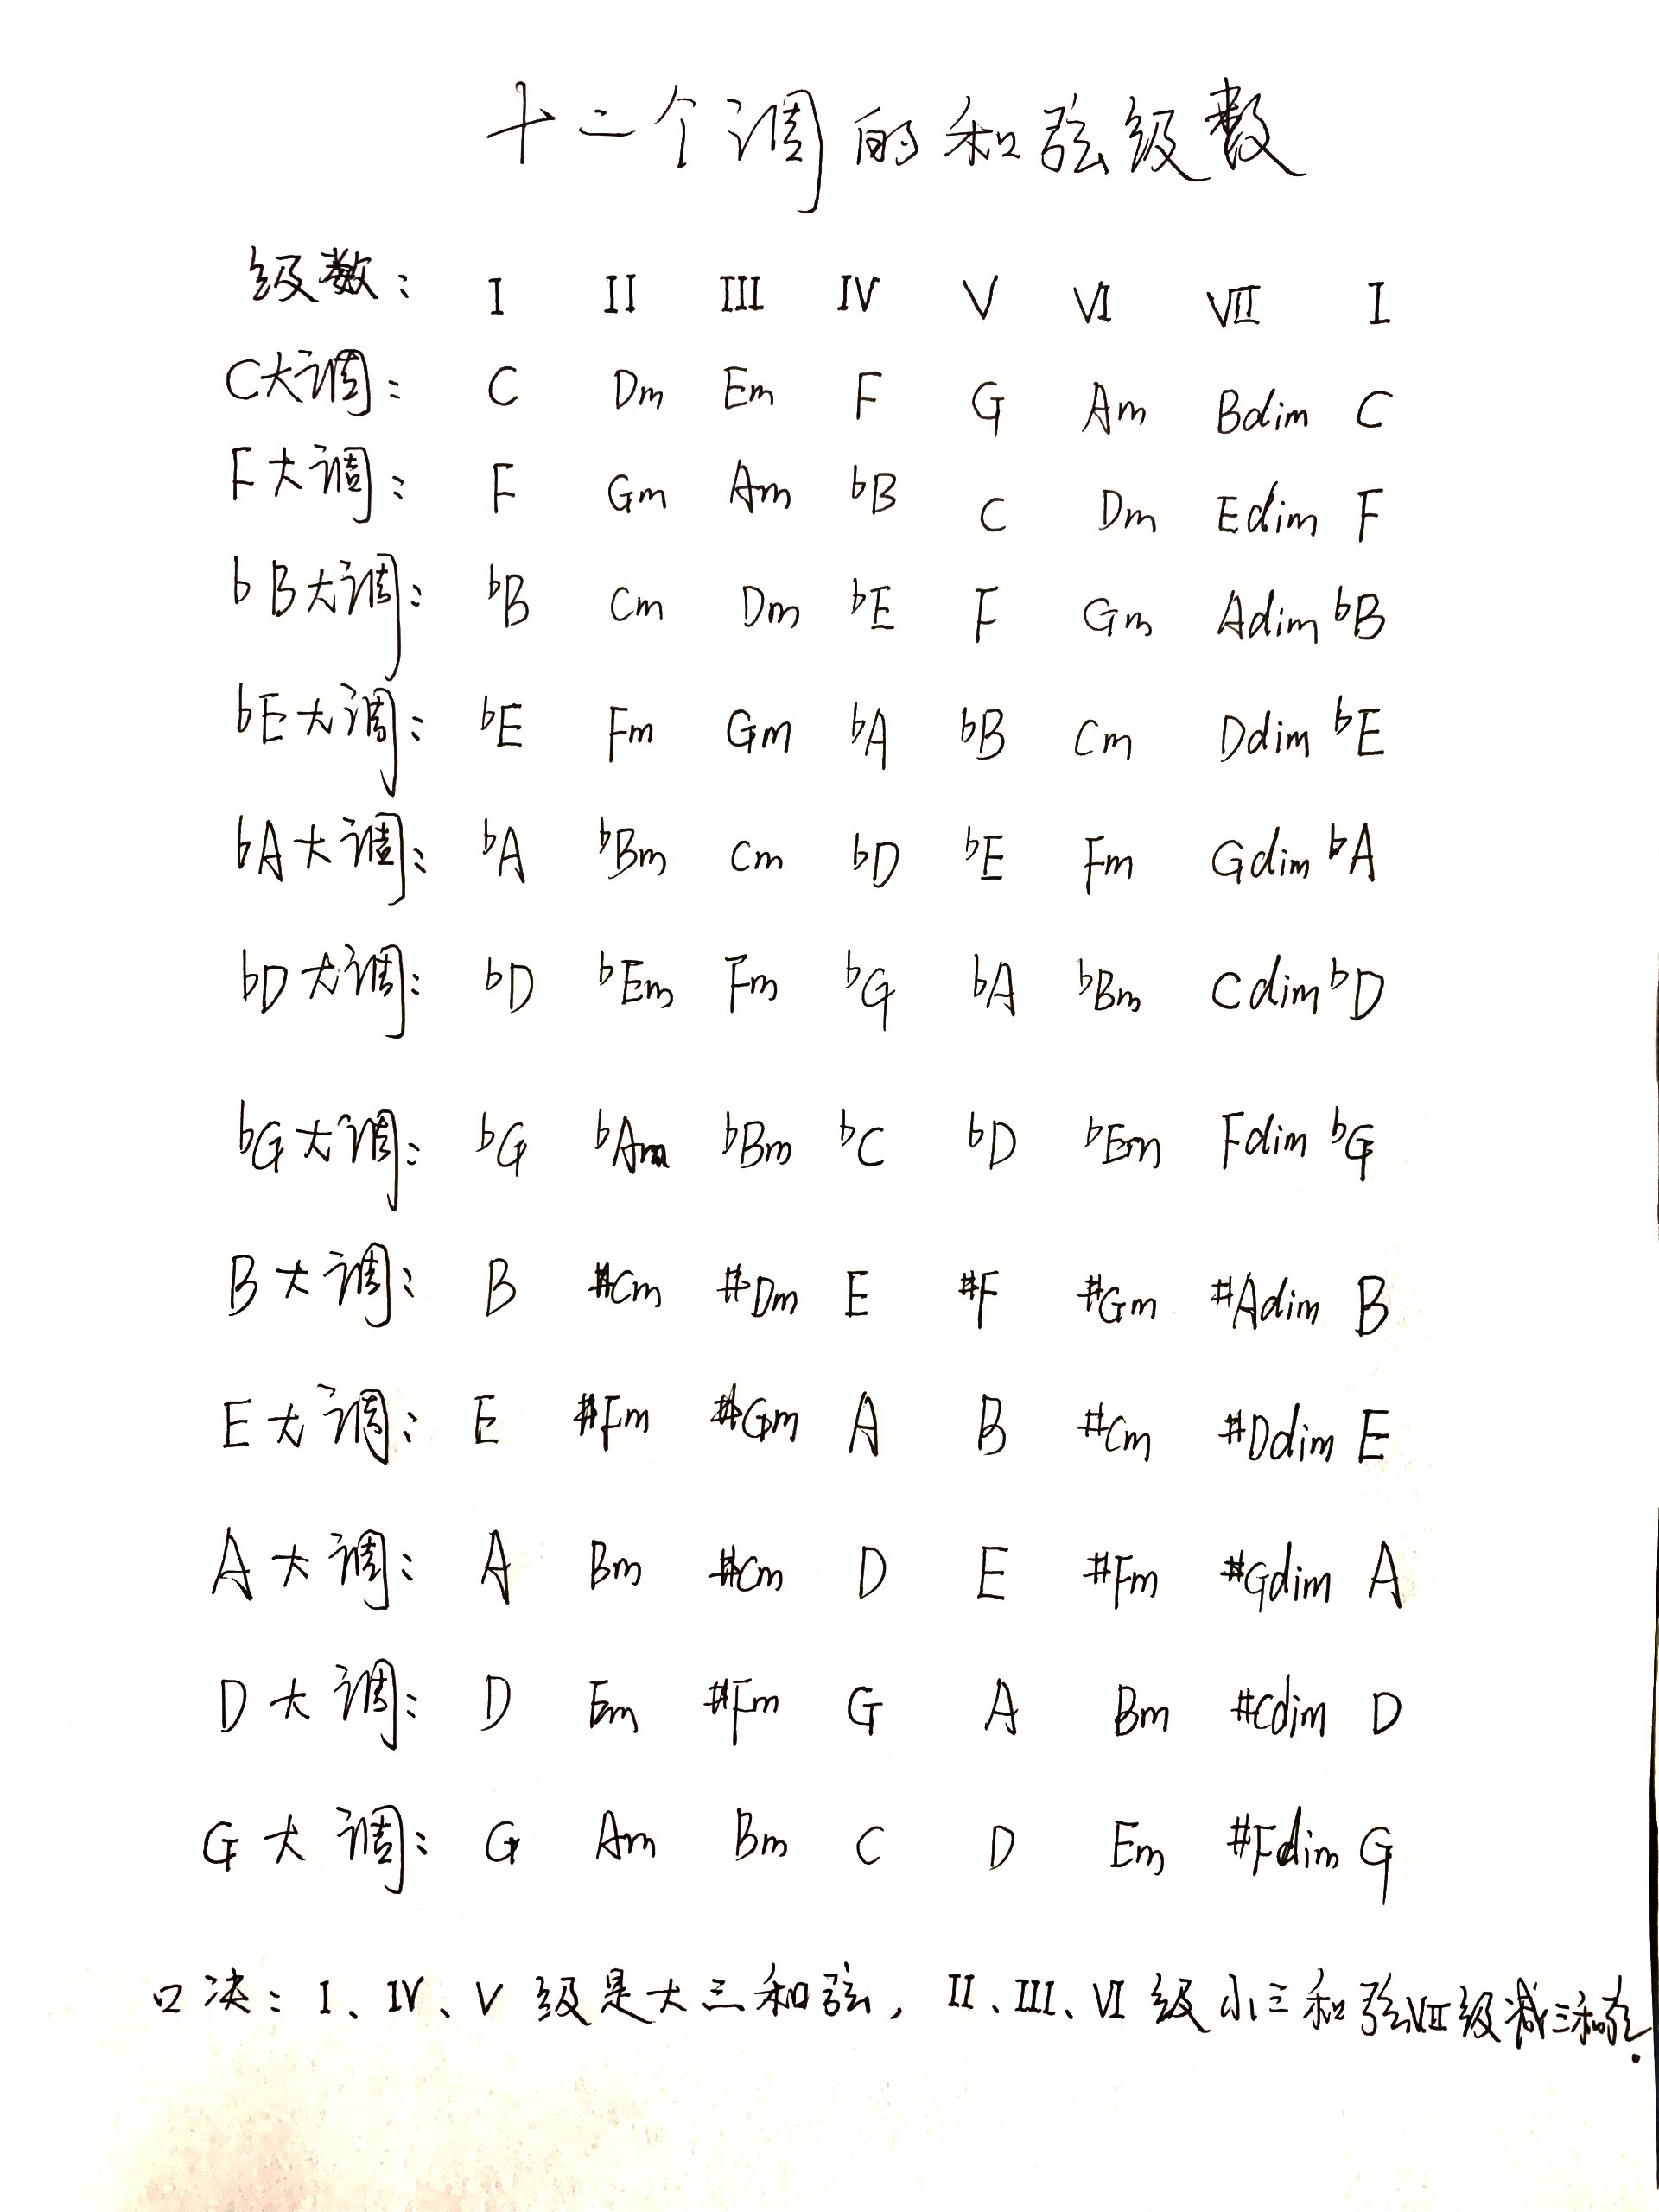 十二个调的和弦级数
级数: I II III IV V VI VII I
C大调: C Dm Em F G Am Bdim C
F大调: F Gm Am bB C Dm Edim F
bB大调: bB Cm Dm bE F Gm Adim bB
bE大调: bE Fm Gm bA bB Cm Ddim bE
bA大调: bA bBm Cm bD bE Fm Gdim bA
bD大调: bD bEm Fm bG bA bBm Cdim bD
bG大调: bG bAm bBm bC bD bEm Fdim bG
B大调: B #Cm #Dm E #F #Gm #Adim B
E大调: E #Fm #Gm A B #Cm #Ddim E
A大调: A Bm #Cm D E #Fm #Gdim A
D大调: D Em #Fm G A Bm #Cdim D
G大调: G Am Bm C D Em #Fdim G
口决: I、IV、V 级是大三和弦, II、III、VI 级小三和弦VII级减三和弦.